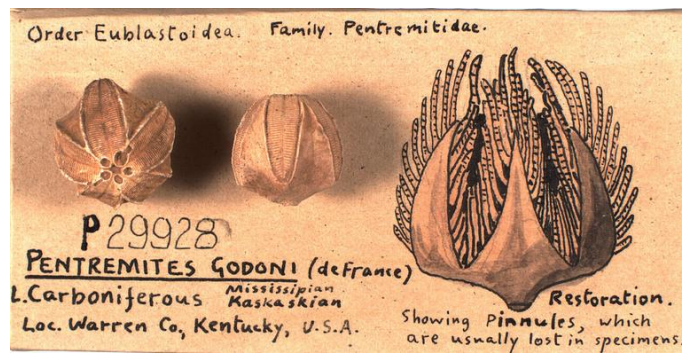 Order Eublastoidea. Family. Pentremitidae.
P29928
PENTREMITES GODONI (deFrance)
L.Carboniferous Mississipian Kaskaskian
Loc. Warren Co, Kentucky, U.S.A.
Restoration.
Showing Pinnules, which
are usually lost in specimens.